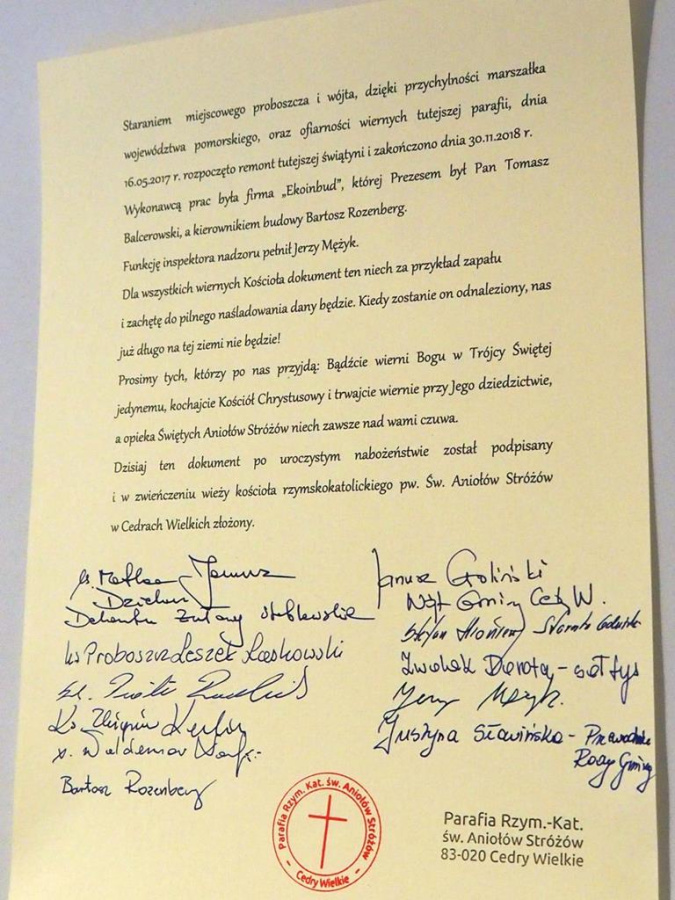 Staraniem miejscowego proboszcza i wójta, dzięki przychylności marszałka
województwa pomorskiego, oraz ofiarności wiernych tutejszej parafii, dnia
16.05.2017 r. rozpoczęto remont tutejszej świątyni i zakończono dnia 30.11.2018 r.
Wykonawcą prac była firma „Ekoinbud”, której Prezesem był Pan Tomasz
Balcerowski, a kierownikiem budowy Bartosz Rozenberg.
Funkcję inspektora nadzoru pełnił Jerzy Mężyk.
Dla wszystkich wiernych Kościoła dokument ten niech za przykład zapału
i zachętę do pilnego naśladowania dany będzie. Kiedy zostanie on odnaleziony, nas
już długo na tej ziemi nie będzie!
Prosimy tych, którzy po nas przyjdą: Bądźcie wierni Bogu w Trójcy Świętej
jedynemu, kochajcie Kościół Chrystusowy i trwajcie wiernie przy Jego dziedzictwie,
a opieka Świętych Aniołów Stróżów niech zawsze nad wami czuwa.
Dzisiaj ten dokument po uroczystym nabożeństwie został podpisany
i w zwieńczeniu wieży kościoła rzymskokatolickiego pw. Św. Aniołów Stróżów
w Cedrach Wielkich złożony.
Janusz
Dziekan
Dekanatu Żuławy
ks Proboszcz Leszek Laskowski
ks. Piotr
Ks. Zbigniew
x. Waldemar
Bartosz Rozenberg
Janusz Goliński
Wójt Gminy Cedry W.
Stefan Starosta Gdański
Dorota - sołtys
Jerzy Mężyk
Justyna Sławińska - Przewodn.
Rady Gminy
Parafia Rzym. Kat. św. Aniołów Stróżów
Cedry Wielkie
Parafia Rzym.-Kat.
św. Aniołów Stróżów
83-020 Cedry Wielkie